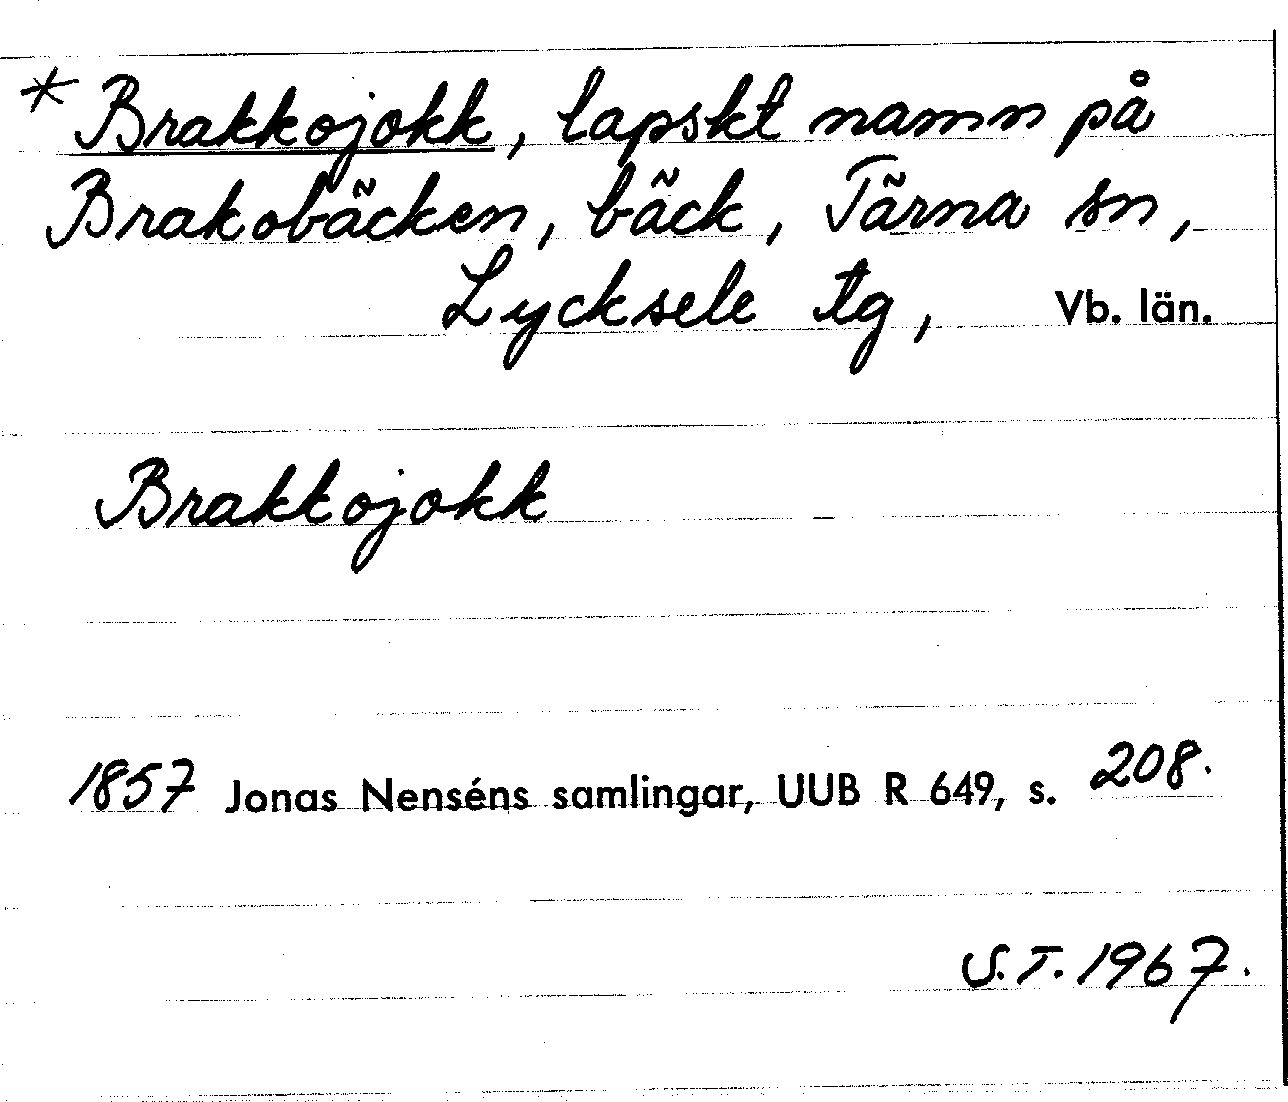 * Brakkojokk, lapskt namn på
Brakobäcken, bäck, Tärna sn,
Lycksele tg, Vb. län.
Brakkojokk
1857 Jonas Nenséns samlingar, UUB R 649, s. 208.
S.T. 1967.